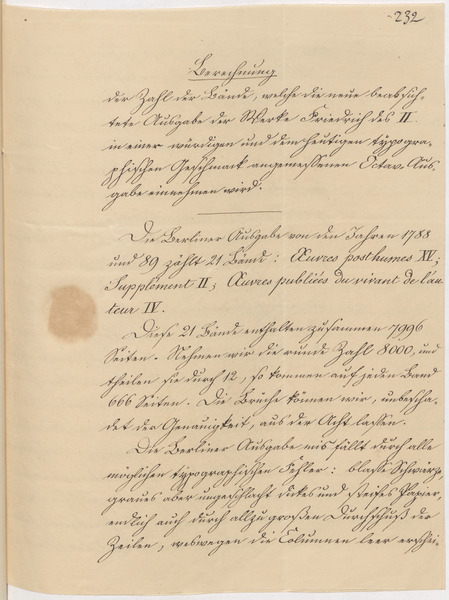 232
Berechnung
der Zahl der Bände, welche die neue beabsich-
tete Ausgabe der Werke Friedrich des II.
in einer würdigen und dem heutigen typogra-
phischen Geschmack angemessenen Octav-Aus-
gabe einnehmen wird.
Die Berliner Ausgabe von den Jahren 1788
und 89 zählt 21 Bände: Œuvres posthumes XV;
Supplément II; Œuvres publiées du vivant de l'au-
teur IV.
Diese 21 Bände enthalten zusammen 7996
Seiten. Nehmen wir die runde Zahl 8000, und
theilen sie durch 12, so kommen auf jeden Band
666 Seiten. Die Brüche können wir, unbescha-
det der Genauigkeit, aus der Acht lassen.
Die Berliner Ausgabe misfällt durch alle
möglichen typographischen Fehler: blasse Schwärze,
graues aber ungeschlacht dickes und steifes Papier,
endlich auch durch allzu großen Durchschuß der
Zeilen, weswegen die Columnen leer erschei-